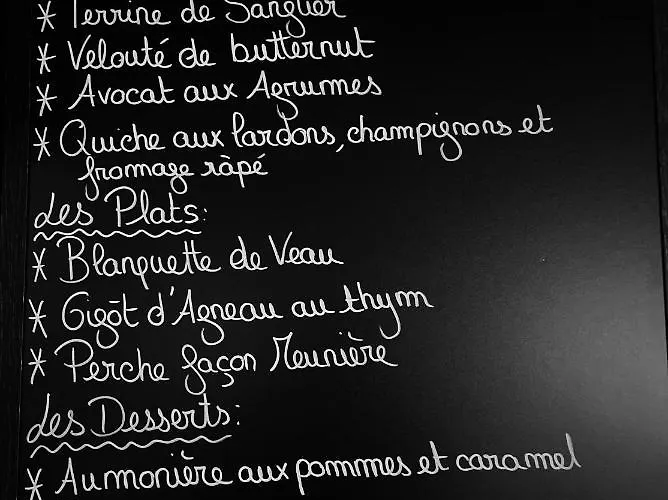 * Terrine de Sanglier
* Velouté de butternut
* Avocat aux Agrumes
* Quiche aux lardons, champignons et
fromage râpé
Les Plats:
* Blanquette de Veau
* Gigôt d'Agneau au thym
* Perche façon Meunière
Les Desserts:
* Aumonière aux pommes et caramel